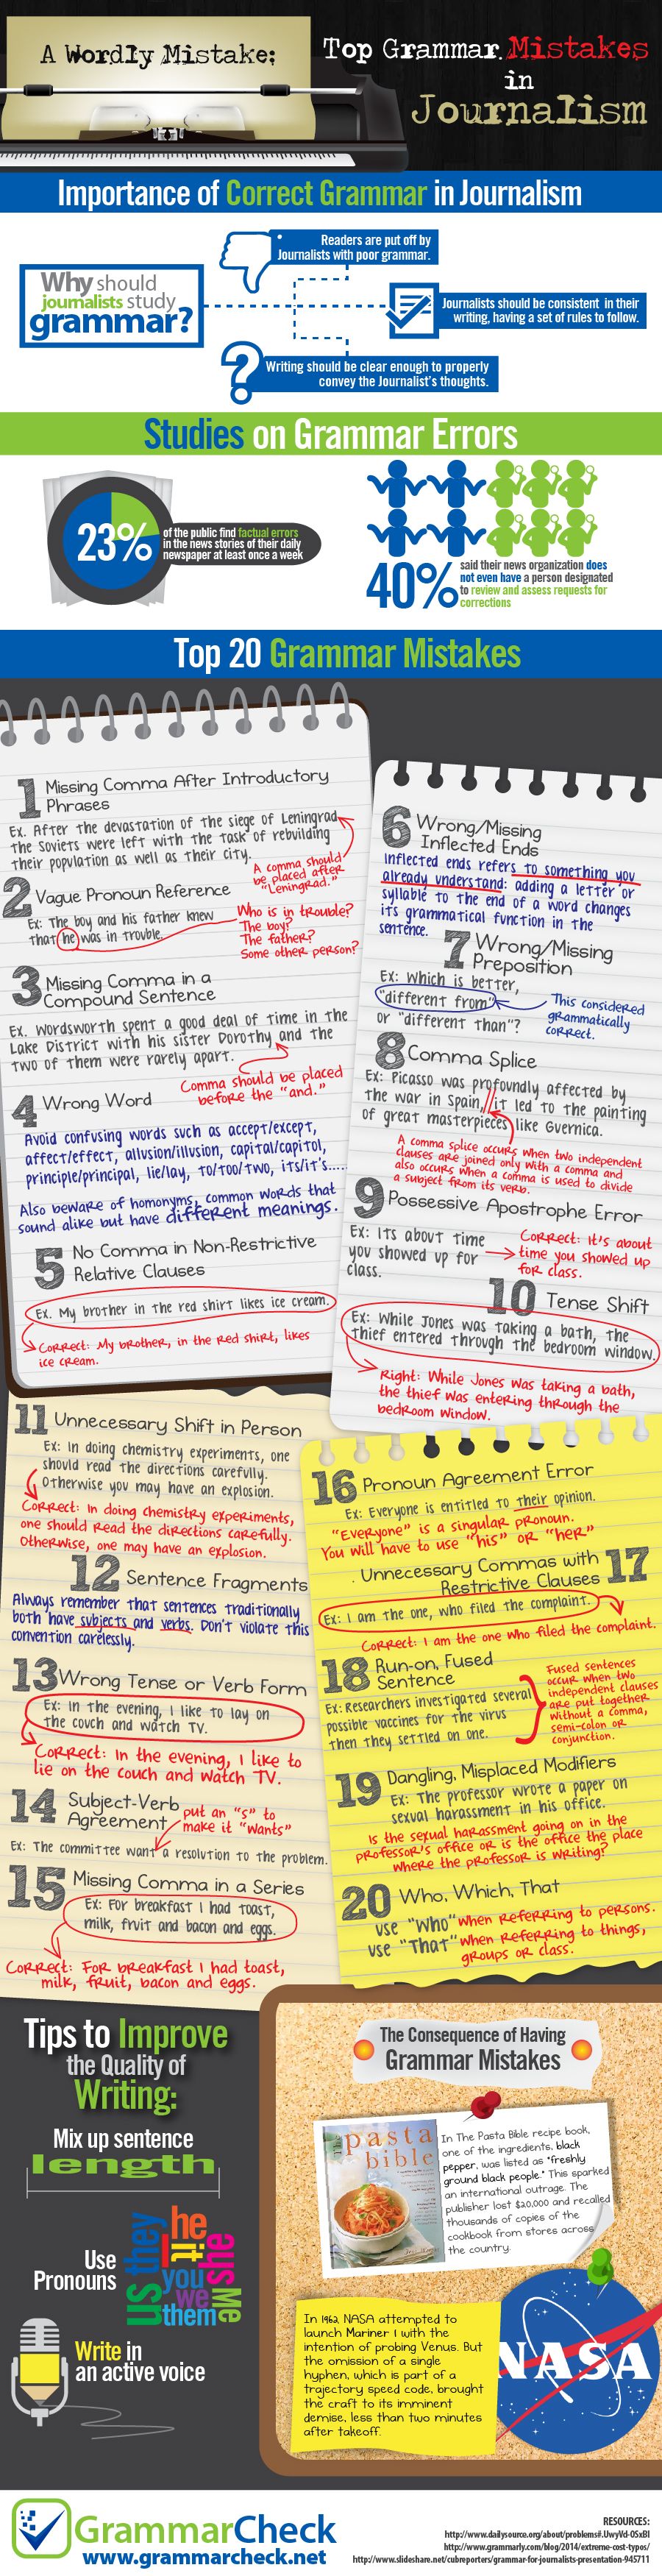 A Wordly Mistake:
Top Grammar Mistakes
in
Journalism
Importance of Correct Grammar in Journalism
Why should
journalists study
grammar?
Readers are put off by
Journalists with poor grammar.
Journalists should be consistent in their
writing, having a set of rules to follow.
Writing should be clear enough to properly
convey the Journalist's thoughts.
Studies on Grammar Errors
23%
of the public find factual errors
in the news stories of their daily
newspaper at least once a week
40%
said their news organization does
not even have a person designated
to review and assess requests for
corrections
Top 20 Grammar Mistakes
1 Missing Comma After Introductory
Phrases
Ex. After the devastation of the siege of Leningrad
the Soviets were left with the task of rebuilding
their population as well as their city.
A comma should
be placed after
"Leningrad."
2 Vague Pronoun Reference
Ex: The boy and his father knew
that he was in trouble.
Who is in trouble?
The boy?
The father?
Some other person?
3 Missing Comma in a
Compound Sentence
Ex. Wordsworth spent a good deal of time in the
Lake District with his sister Dorothy and the
two of them were rarely apart.
Comma should be placed
before the "and."
4 Wrong Word
Avoid confusing words such as accept/except,
affect/effect, allusion/illusion, capital/capitol,
principle/principal, lie/lay, to/too/two, its/it's.....
Also beware of homonyms, common words that
sound alike but have different meanings.
5 No Comma in Non-Restrictive
Relative Clauses
Ex. My brother in the red shirt likes ice cream.
Correct: My brother, in the red shirt, likes
ice cream.
6 Wrong/Missing
Inflected Ends
Inflected ends refers to something you
already understand: adding a letter or
syllable to the end of a word changes
its grammatical function in the
sentence.
7 Wrong/Missing
Preposition
Ex: Which is better,
"different from"
or "different than"?
This considered
grammatically
correct.
8 Comma Splice
Ex: Picasso was profoundly affected by
the war in Spain, it led to the painting
of great masterpieces like Guernica.
A comma splice occurs when two independent
clauses are joined only with a comma and
also occurs when a comma is used to divide
a subject from its verb.
9 Possessive Apostrophe Error
Ex: Its about time
you showed up for
class.
Correct: It's about
time you showed up
for class.
10 Tense Shift
Ex: While Jones was taking a bath, the
thief entered through the bedroom window.
Right: While Jones was taking a bath,
the thief was entering through the
bedroom window.
11 Unnecessary Shift in Person
Ex: In doing chemistry experiments, one
should read the directions carefully.
Otherwise you may have an explosion.
Correct: In doing chemistry experiments,
one should read the directions carefully.
Otherwise, one may have an explosion.
12 Sentence Fragments
Always remember that sentences traditionally
both have subjects and verbs. Don't violate this
convention carelessly.
13 Wrong Tense or Verb Form
Ex: In the evening, I like to lay on
the couch and watch TV.
Correct: In the evening, I like to
lie on the couch and watch TV.
14 Subject-Verb
Agreement
put an "s" to
make it "wants"
Ex: The committee want a resolution to the problem.
15 Missing Comma in a Series
Ex: For breakfast I had toast,
milk, fruit and bacon and eggs.
Correct: For breakfast I had toast,
milk, fruit, bacon and eggs.
16 Pronoun Agreement Error
Ex: Everyone is entitled to their opinion.
"Everyone" is a singular pronoun.
You will have to use "his" or "her"
Unnecessary Commas with
Restrictive Clauses 17
Ex: I am the one, who filed the complaint.
Correct: I am the one who filed the complaint.
18 Run-on, Fused
Sentence
Ex: Researchers investigated several
possible vaccines for the virus
then they settled on one.
Fused sentences
occur when two
independent clauses
are put together
without a comma,
semi-colon or
conjunction.
19 Dangling, Misplaced Modifiers
Ex: The professor wrote a paper on
sexual harassment in his office.
Is the sexual harassment going on in the
professor's office or is the office the place
where the professor is writing?
20 Who, Which, That
use "Who" when referring to persons.
use "That" when referring to things,
groups or class.
Tips to Improve
the Quality of
Writing:
Mix up sentence
length
Use
Pronouns
us
they
he
it
you
we
them
she
me
Write in
an active voice
The Consequence of Having
Grammar Mistakes
pasta
bible
In The Pasta Bible recipe book,
one of the ingredients, black
pepper, was listed as "freshly
ground black people." This sparked
an international outrage. The
publisher lost $20,000 and recalled
thousands of copies of the
cookbook from stores across
the country.
In 1962, NASA attempted to
launch Mariner 1 with the
intention of probing Venus. But
the omission of a single
hyphen, which is part of a
trajectory speed code, brought
the craft to its imminent
demise, less than two minutes
after takeoff.
NASA
GrammarCheck
www.grammarcheck.net
RESOURCES:
http://www.dailysource.org/about/problems#.UwyVd-OSxBI
http://www.grammarly.com/blog/2014/extreme-cost-typos/
http://www.slideshare.net/cubreporters/grammar-for-journalists-presentation-945711